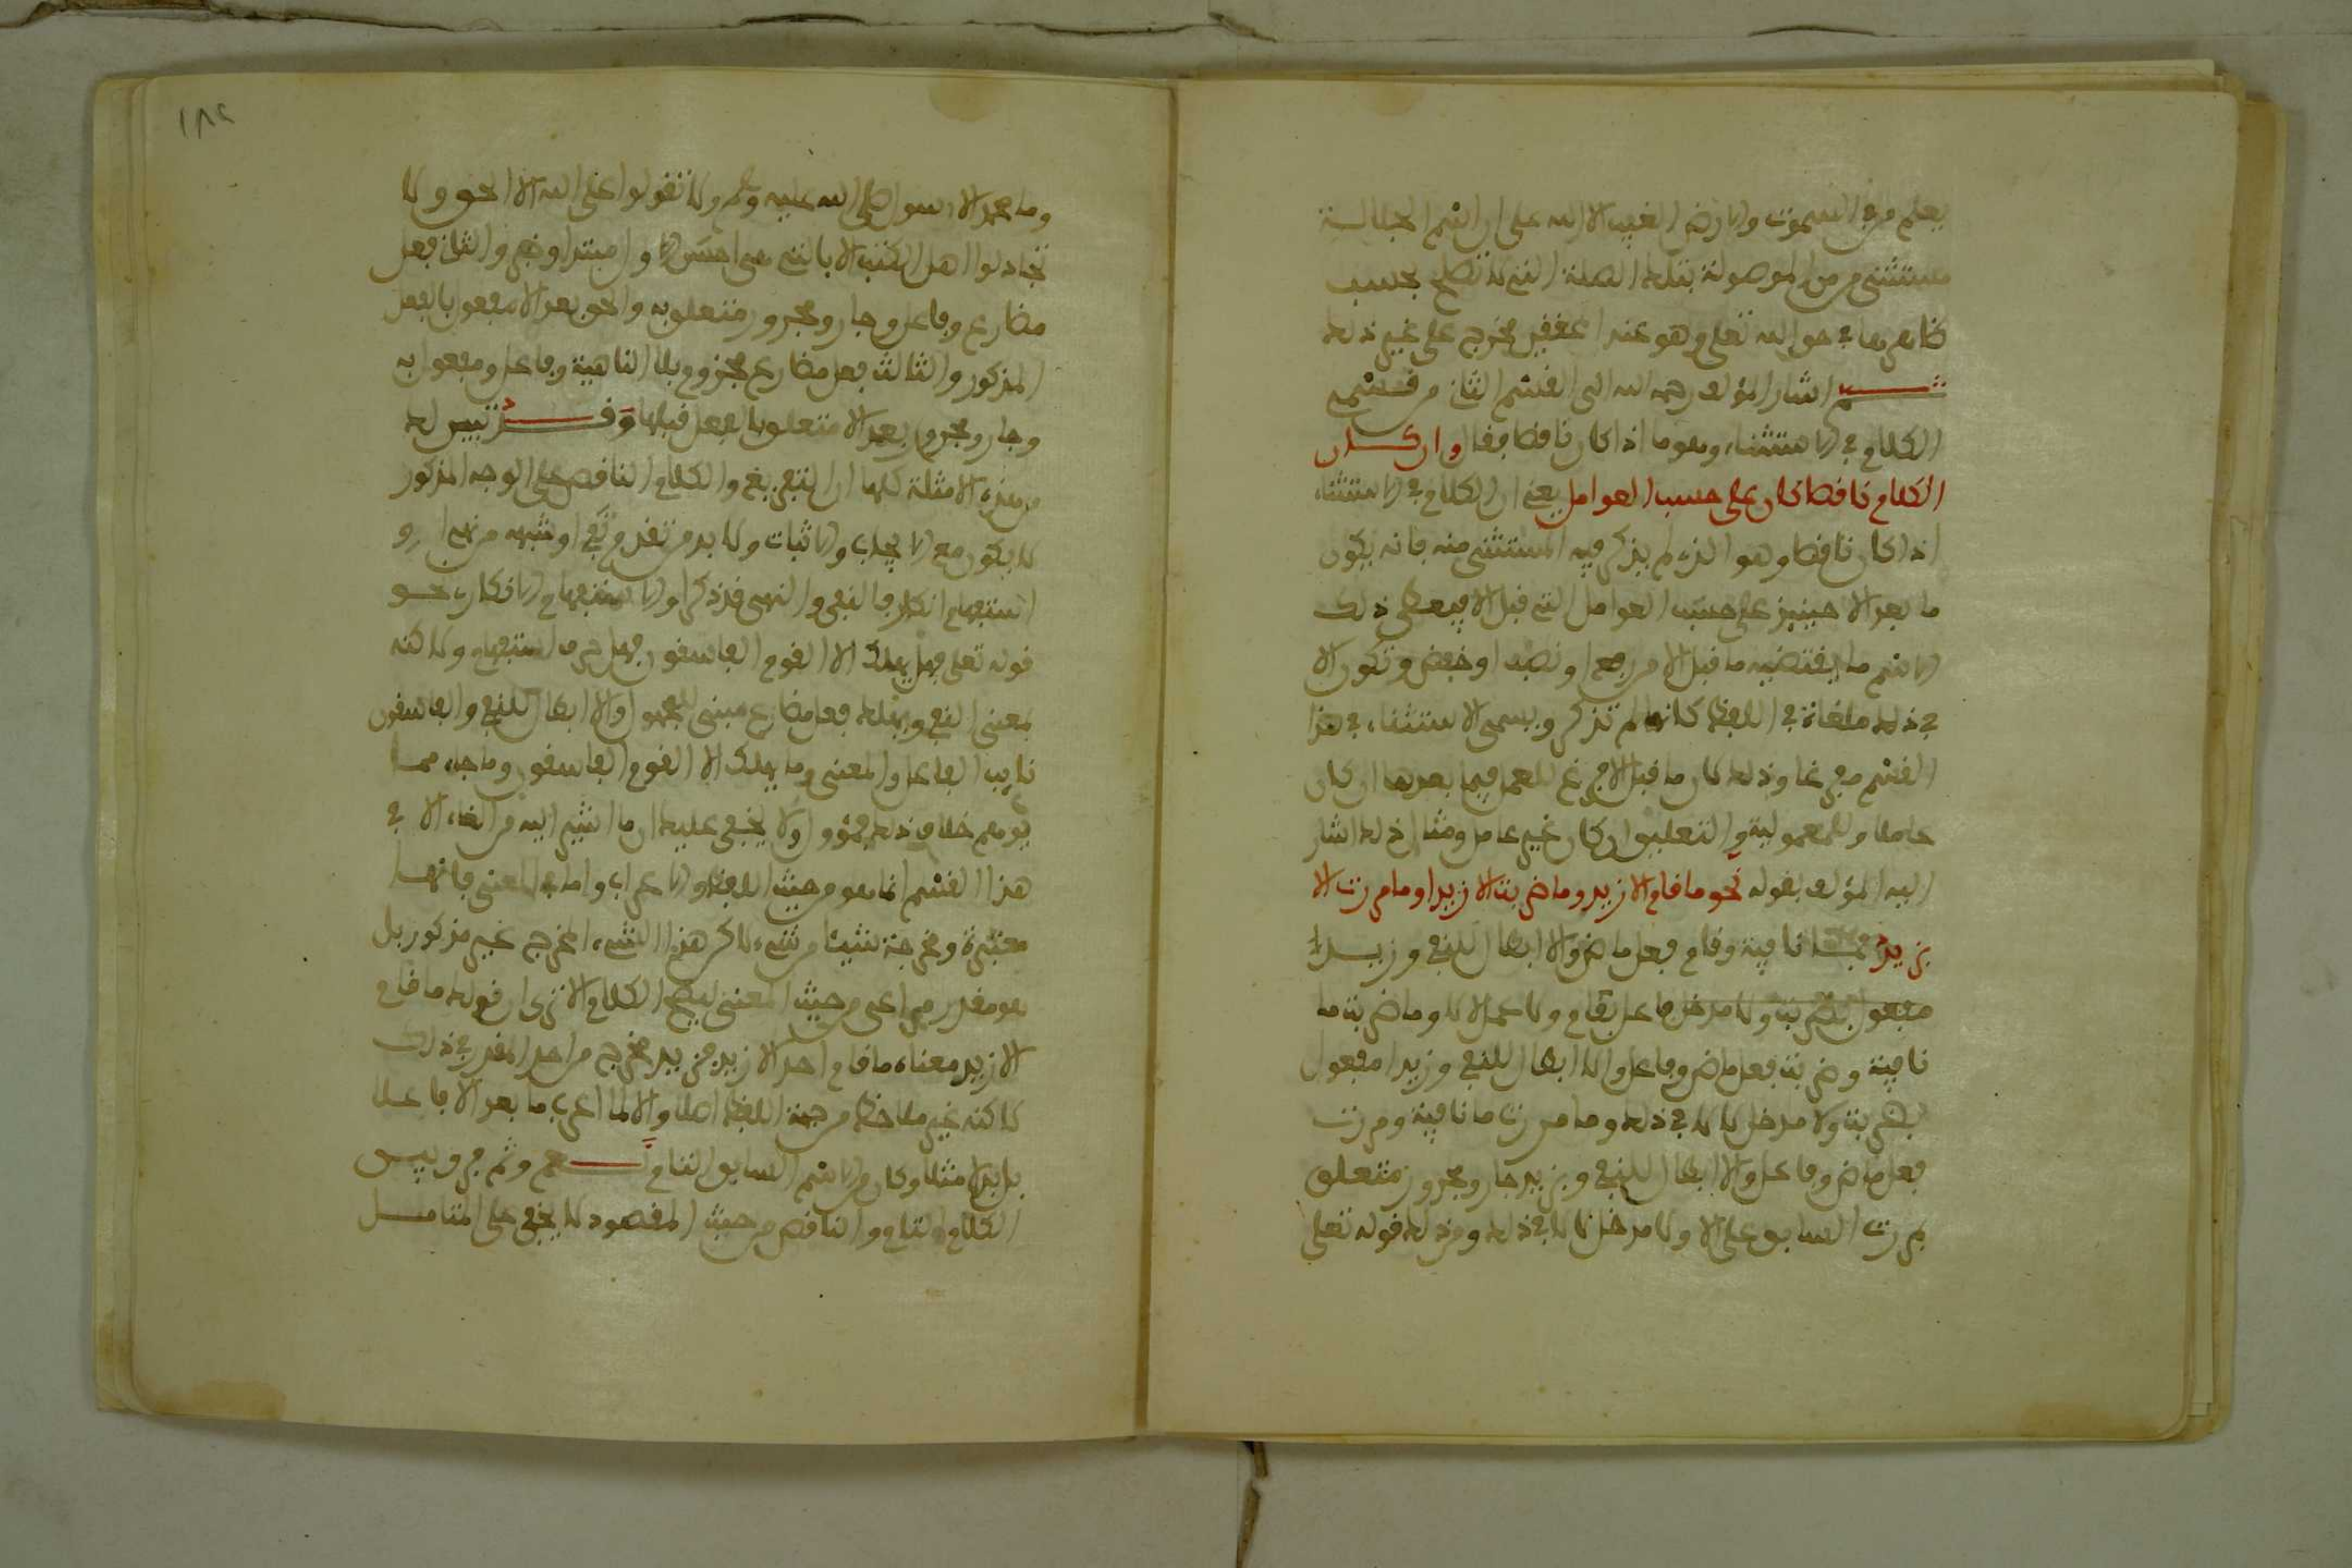 يعلم من في السموت والارض الغيب الا الله على ان اسم الجلالة
مستثنى من من الموصولة بتلك الصلة التي لا تصلح بحسب
ظاهرها في حق الله تعلى وهو عند المحققين مخرج على غير ذلك
ثم اشار المؤلف رحمه الله الى القسم الثاني من قسمي
الكلام في الاستثناء وهو ما اذا كان ناقصا فقال وان كان
الكلام ناقصا كان على حسب العوامل يعني ان الكلام في الاستثناء
اذا كان ناقصا وهو الذي لم يذكر فيه المستثنى منه فانه يكون
ما بعد الا حينئذ على حسب العوامل التي قبل الا فيعطى ذلك
الاسم ما يقتضيه ما قبل الا من رفع او نصب او خفض وتكون الا
في ذلك ملغاة في اللفظ كانها لم تذكر ويسمى الاستثناء في هذا
القسم مفرغا وذلك لان ما قبل الا فرغ للعمل فيما بعدها ان كان
عاملا وللمعمولية والتعليق ان كان غير عامل ومثال ذلك اشار
اليه المؤلف بقوله نحو ما قام الا زيد وما ضربت الا زيدا وما مررت الا
بزيد فما نافية وقام فعل ماض والا ابطال للنفي وزيد
فاعل بقام ولا عمل لالا وما ضربت ما
نافية وضربت فعل ماض وفاعل والا ابطال للنفي وزيدا مفعول
بضربت ولا مدخل لالا في ذلك وما مررت ما نافية ومررت
فعل ماض وفاعل والا ابطال للنفي وبزيد جار ومجرور متعلق
بمررت السابق على الا ولا مدخل لالا في ذلك ومن ذلك قوله تعلى
١٨٢
وما محمد الا رسول صلى الله عليه وسلم ولا تقولوا على الله الا الحق ولا
تجادلوا اهل الكتب الا بالتي هي احسن الاول مبتدا وخبر والثاني فعل
مضارع وفاعل وجار ومجرور متعلق به والحق بعد الا مفعول بالفعل
المذكور والثالث فعل مضارع مجزوم بلا الناهية وفاعل ومفعول به
وجار ومجرور بعد الا متعلق بالفعل قبلها وقد تبين لك
من هذه الامثلة كلها ان التفريغ والكلام الناقص على الوجه المذكور
لا يكون مع الايجاب والاثبات ولا بد من تقدم نفي او شبهه من نهي او
استفهام انكار فالنفي والنهي قد ذكرا والاستفهام الانكاري نحو
قوله تعلى فهل يهلك الا القوم الفاسقون فهل حرف استفهام ولاكنه
بمعنى النفي ويهلك فعل مضارع مبني للمجهول والا ابطال للنفي والفاسقون
نايب الفاعل والمعنى وما يهلك الا القوم الفاسقون وما جاء مما
يوهم خلاف ذلك فمؤول ولا يخفى عليك ان ما اشير اليه من الغاء الا في
هذا القسم انما هو من حيث اللفظ والاعراب واما في المعنى فانها
معتبرة ومخرجة شيئا من شيء لاكن هذا الشيء المخرج غير مذكور بل
هو مقدر مراعى من حيث المعنى ليصح الكلام الا ترى ان قولك ما قام
الا زيد معناه ما قام احد الا زيد فزيد مخرج من احد المقدر في ذلك
لاكنه غير ملاحظ من جهة اللفظ اصلا والا لما اعرب ما بعد الا فاعلا
بل بدلا مثلا وكان من القسم السابق التام نعم وثم فرق بين
الكلام التام والناقص من حيث المقصود لا يخفى على المتامل